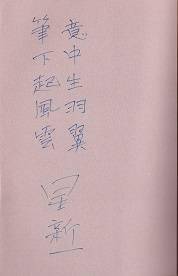 意中生羽翼
筆下起風雲
星新一